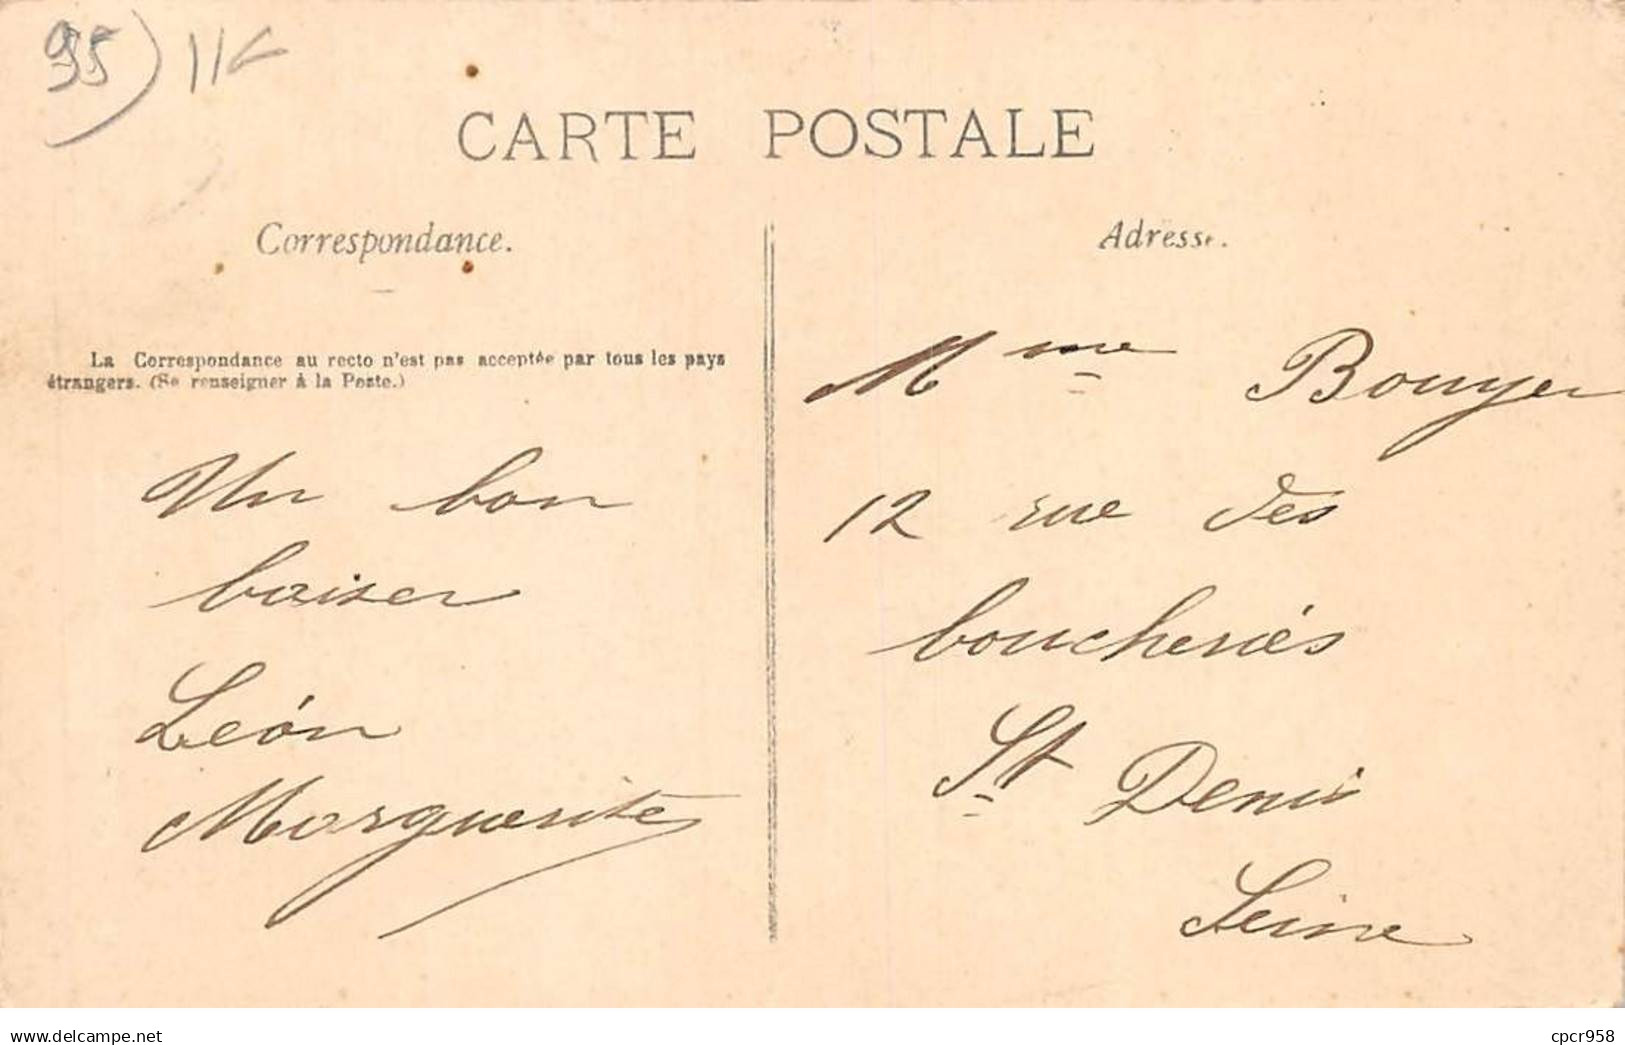 95) 11€
CARTE POSTALE
Correspondance.
La Correspondance au recto n'est pas acceptée par tous les pays
étrangers. (Se renseigner à la Poste.)
Un bon
baiser
Léon
Marguerite
Adresse.
Mme Bouyer
12 rue des
boucheries
St Denis
Seine
www.delcampe.net
cpcr958